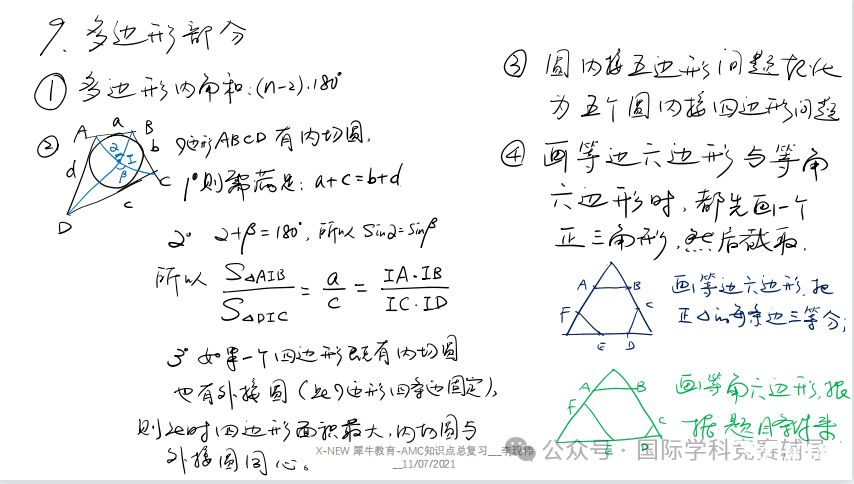 9. 多边形部分
① 多边形内角和:(n-2)·180°
② A a B
b
d
I
α
β
C
c
D
四边形ABCD 有内切圆,
1° 则需满足: a+c=b+d
2° α+β=180°, 所以 sinα=sinβ
所以 S△AIB / S△DIC = a / c = IA·IB / IC·ID
3° 如果一个四边形既有内切圆
也有外接圆 (此四边形四条边固定),
则此时四边形面积最大, 内切圆与
外接圆同心。
③ 圆内接五边形问题转化
为五个圆内接四边形问题
④ 画等边六边形与等角
六边形时, 都先画一个
正三角形, 然后截取.
A B
F C
E D
画等边六边形, 把
正△的每条边三等分;
A B
F C
E D
画等角六边形, 根
据题目条件来
公众号·国际学科竞赛辅导
X-NEW 犀牛教育-AMC知识点总复习__李现伟
__11/07/2021